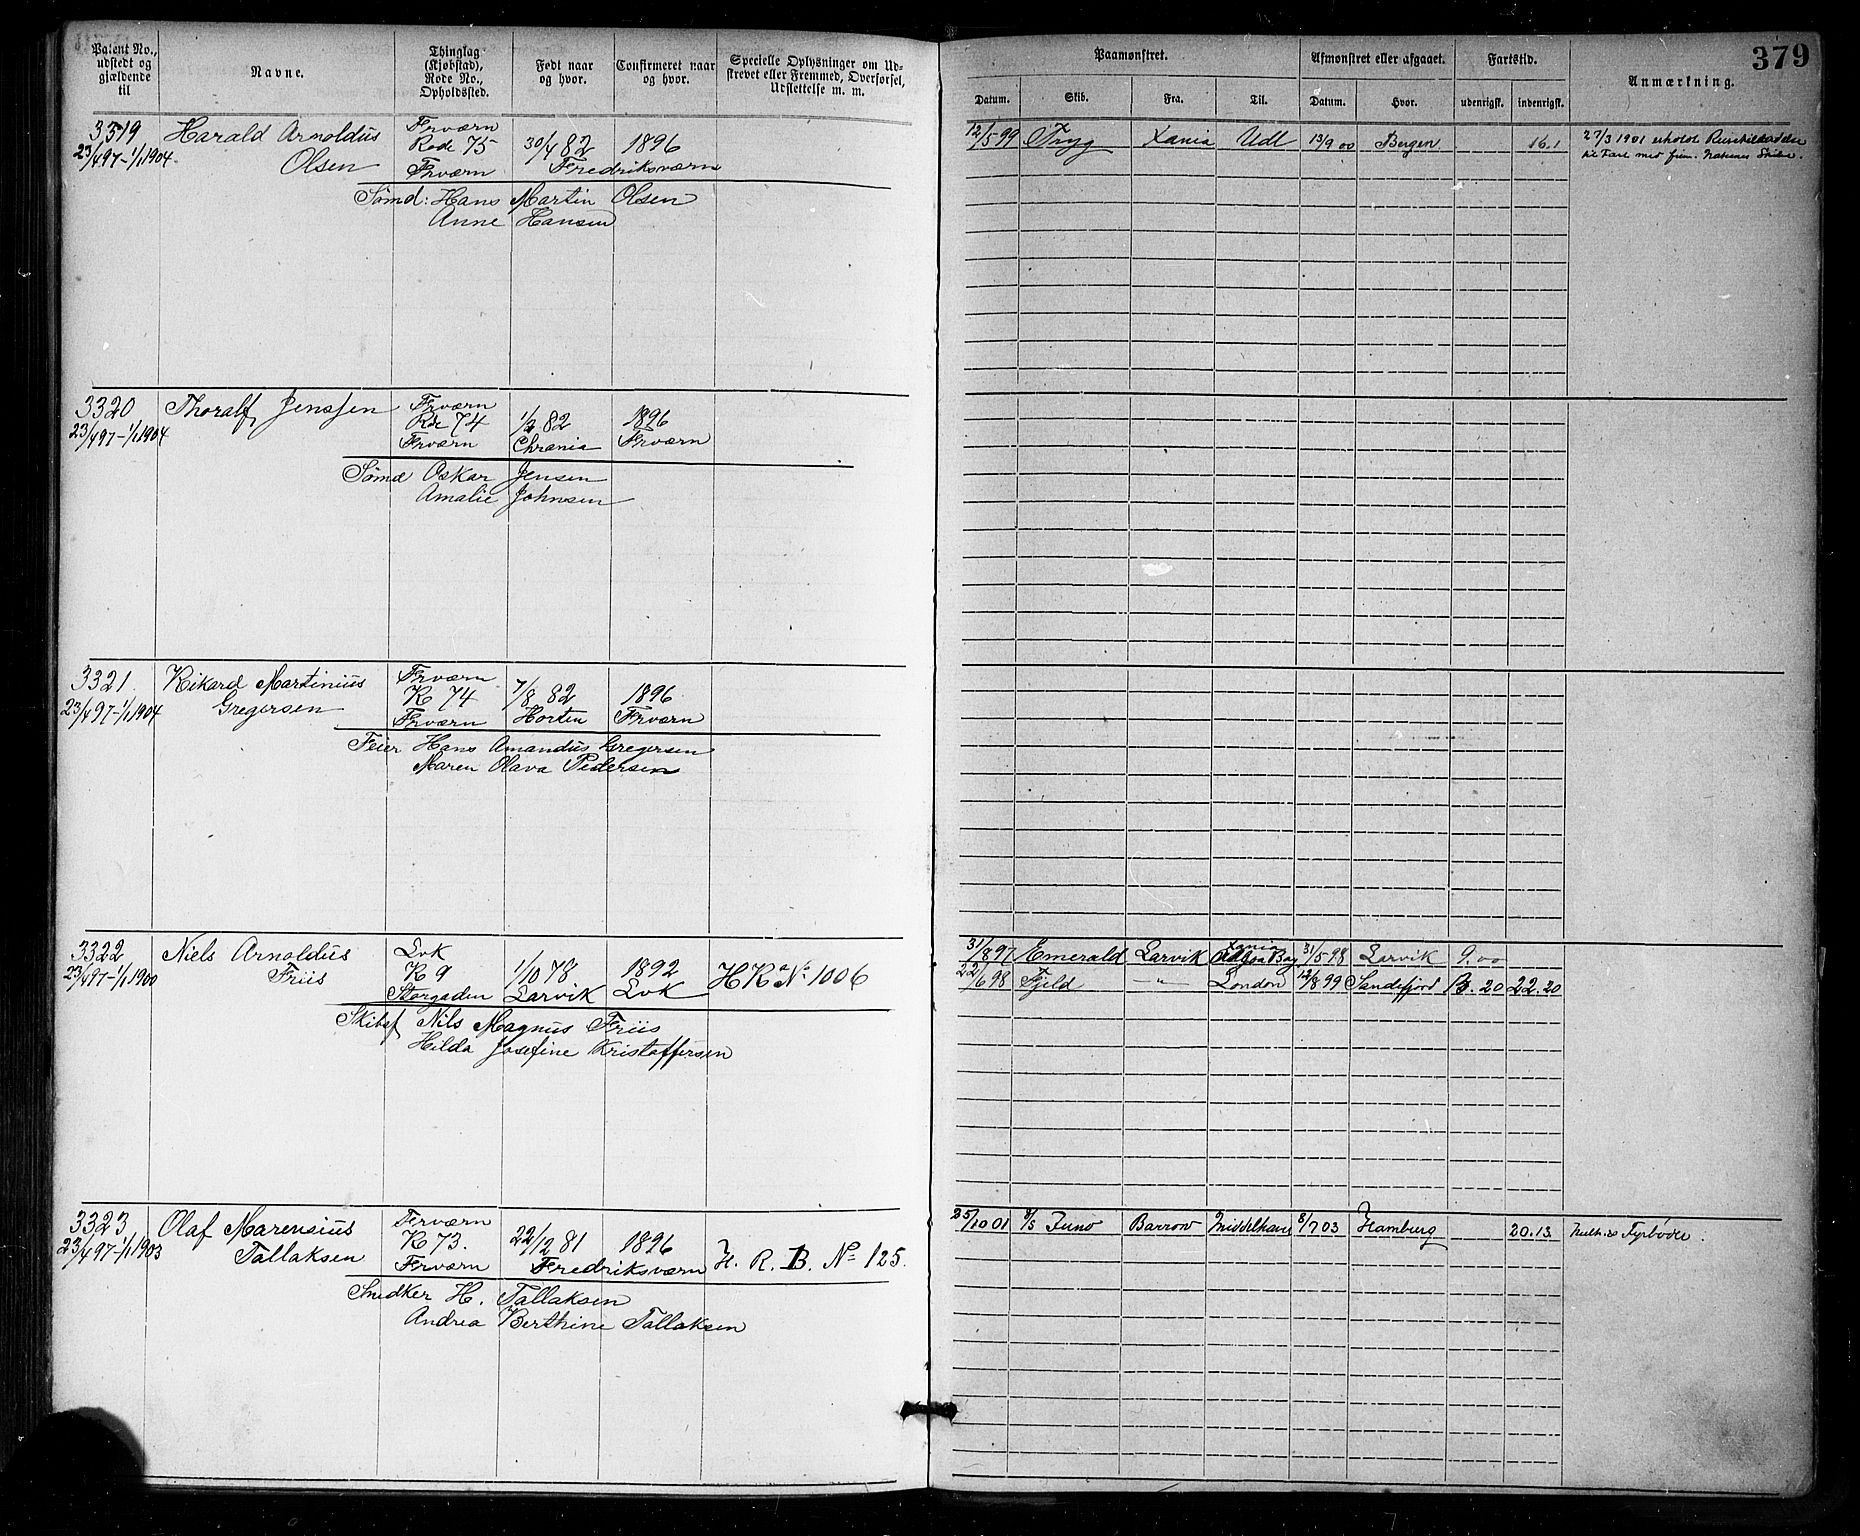 379
Patent No., udstedt og gjældende til
Navne.
Thinglag (Kjøbstad), Rode No., Opholdssted.
Født naar og hvor.
Confirmeret naar og hvor.
Specielle Oplysninger om Udstrevet eller Fremmed, Overførsel, Udslettelse m. m.
Paamønstret.
Afmønstret eller afgaaet.
Fartstid.
Anmærkning.
Datum. Skib. Fra. Til. Datum. Hvor. udenrigsk. indenrigsk.
3319 Harald Arnoldus Frværn
23/4 97-1/1 1904 Olsen Rode 75 30/4 82 1896
Frværn Fredriksværn
Sømd: Hans Martin Olsen
Anne Hansen
12/5 99 Tryg Xania Udl 13/9 00 Bergen 16.1 27/3 1901 erholdt
til Fart med frem. Skibe.
3320 Thoralf Jenssen Frværn
23/4 97-1/1 1904 Rde 74 82 1896
Frværn Chrania Frværn
Sømd Oskar Jensen
Amalie Johnsen
3321 Rikard Martinius Frværn
23/4 97-1/1 1904 Gregersen R 74 7/8 82 1896
Frværn Horten Frværn
Feier Hans Amandus Gregersen
Maren Olava Pedersen
3322 Niels Arnoldus Lvk
23/4 97-1/1 1900 Friis R 9 1/10 78 1892 H R a No 1006
Storgaden Larvik Lvk
Skibsf Nils Magnus Friis
Hilda Josefine Kristoffersen
31/8 97 Emerald Larvik Xania Bay 31/5 98 Larvik 9.00
22/6 98 Fjeld —"— London 12/8 99 Sandefjord 13.20 22.20
3323 Olaf Marensius Frværn
23/4 97-1/1 1903 Tallaksen R 73. 22/12 81 1896 H. R. B. No 125.
Frværn Fredriksværn
Snedker H. Tallaksen
Andrea Berthine Tallaksen
25/10 01 Juno Barrow 8/7 03 Hamberg 20.13.